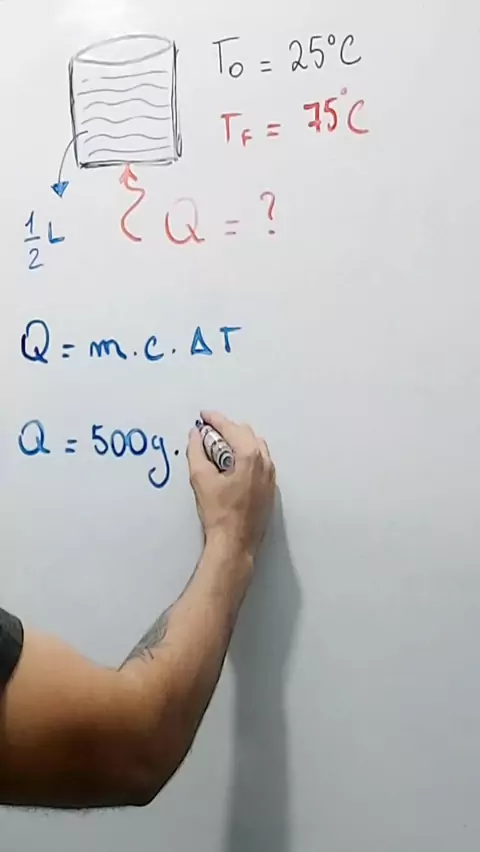 T₀ = 25°C
T_F = 75°C
1/2 L
Q = ?
Q = m.c.ΔT
Q = 500g.